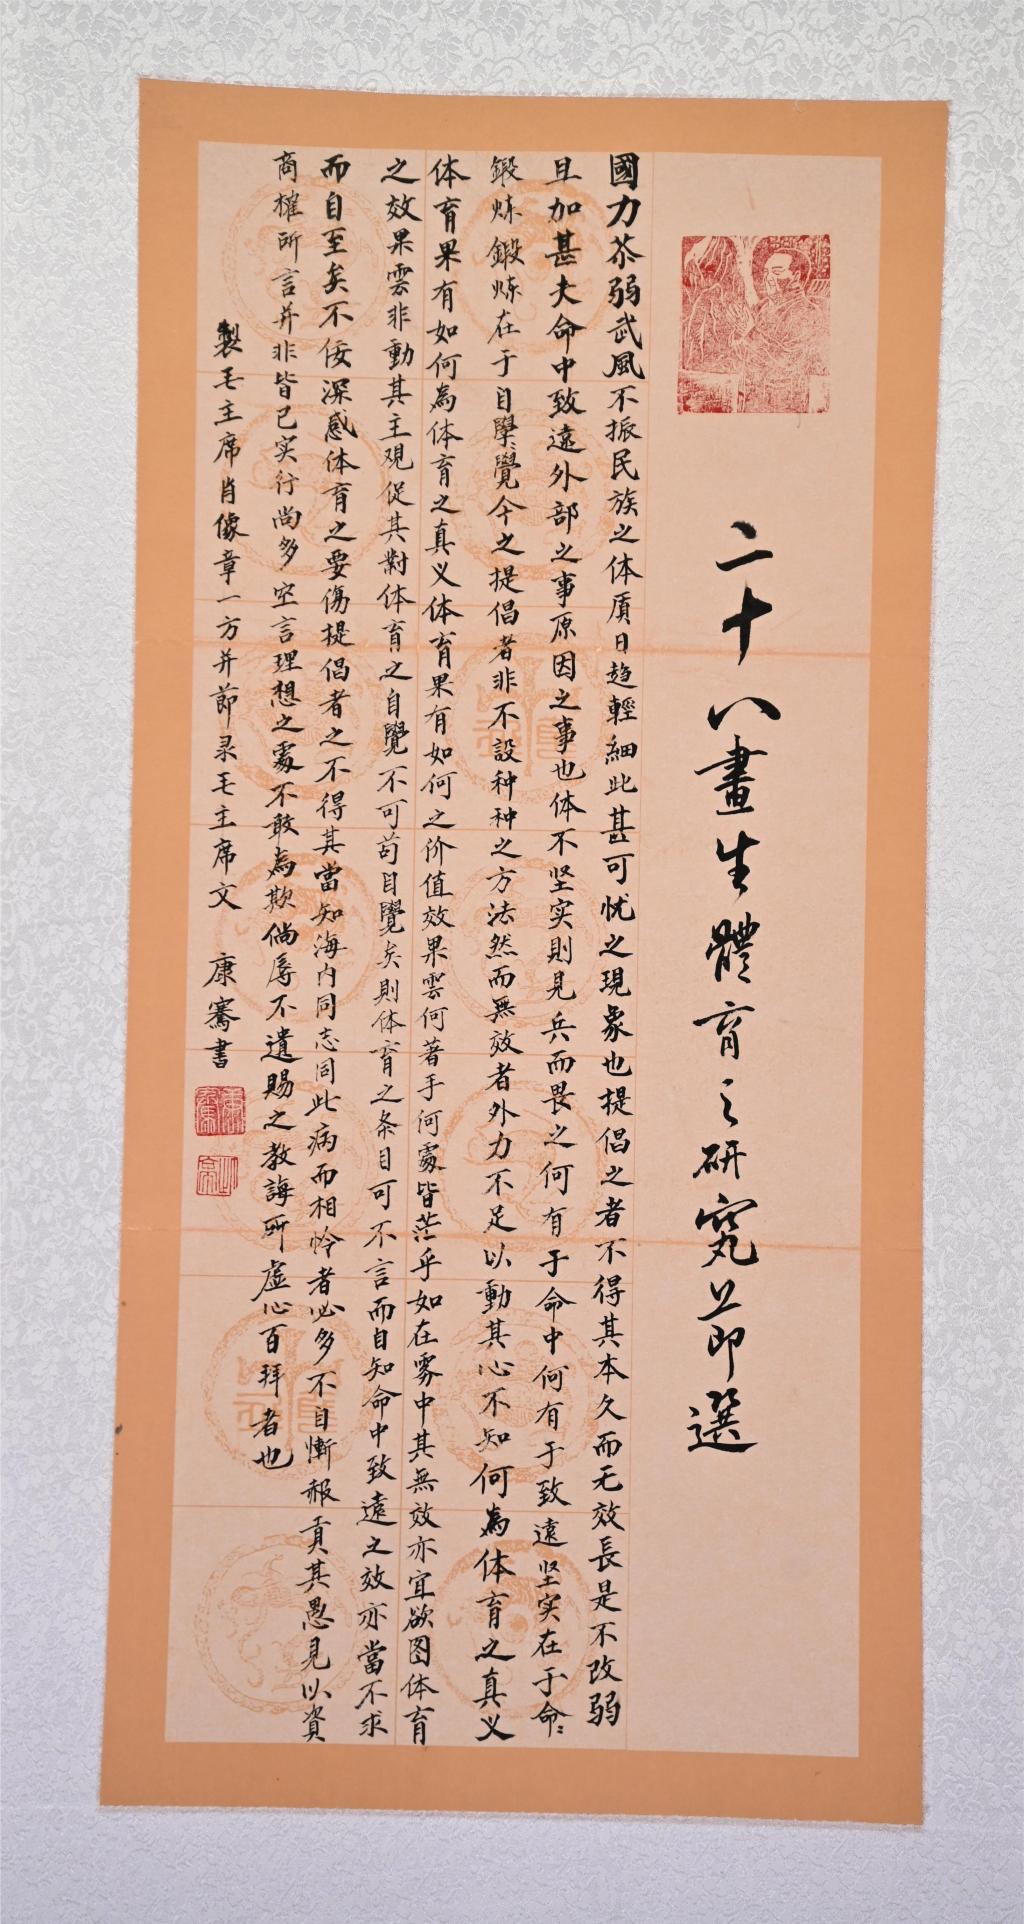 二十八畫生體育之研究節選
國力苶弱武風不振民族之体质日趋輕細此甚可忧之現象也提倡之者不得其本久而无效長是不改弱
且加甚夫命中致遠外部之事原因之事也体不坚实則見兵而畏之何有于命中何有于致遠坚实在于命〻
鍛炼鍛炼在于自學〻覺今之提倡者非不設种种之方法然而無效者外力不足以動其心不知何為体育之真义
体育果有如何為体育之真义体育果有如何之价值效果雲何著手何處皆茫乎如在雾中其無效亦宜欲图体育
之效果雲非動其主观促其對体育之自覺不可苟自覺矣則体育之条目可不言而自知命中致遠之效亦當不求
而自至矣不佞深感体育之要傷提倡者之不得其當知海内同志同此病而相怜者必多不自慚赧貢其愚見以資
商榷所言并非皆已实行尚多空言理想之處不敢為欺倘辱不遺賜之教誨所虛心百拜者也
製毛主席肖像章一方并節录毛主席文 康騫書